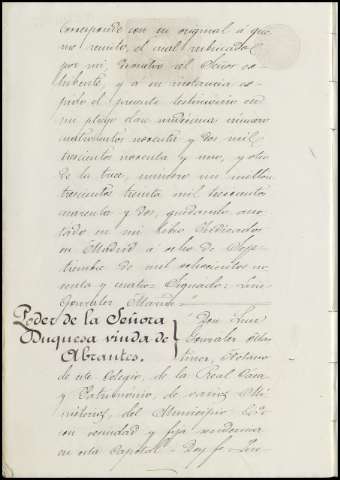 corresponde con su original á que
me remito, el cual rubricado
por mi, devuelvo al Señor ex-
hibente, y á su instancia ex-
pido el presente testimonio en
un pliego clase undécima número
cuatrocientos noventa y dos mil
trescientos noventa y uno, y otro
de la trece, número un millon
trescientos treinta mil doscientos
cuarenta y dos, quedando ano-
tado en mi libro Indicador
en Madrid á ocho de Sep-
tiembre de mil ochocientos no-
venta y cuatro = Signado = Luis
Gonzalez Martinez
Poder de la Señora
Duquesa viuda de
Abrantes.
Don Luis
Gonzalez Mar-
tinez, Notario
de este Colegio, de la Real Casa
y Patrimonio, de varios Mi-
nisterios, del Municipio
con vecindad y fija residencia
en esta Capital = Doy fe =